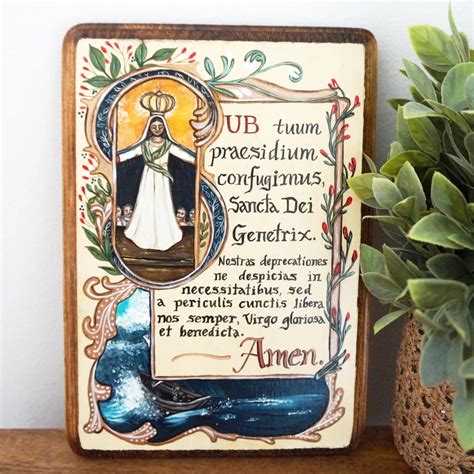 SUB tuum
praesidium
confugimus,
Sancta Dei
Genetrix.
Nostras deprecationes
ne despicias in
necessitatibus, sed
a periculis cunctis libera
nos semper, Virgo gloriosa
et benedicta.
Amen.